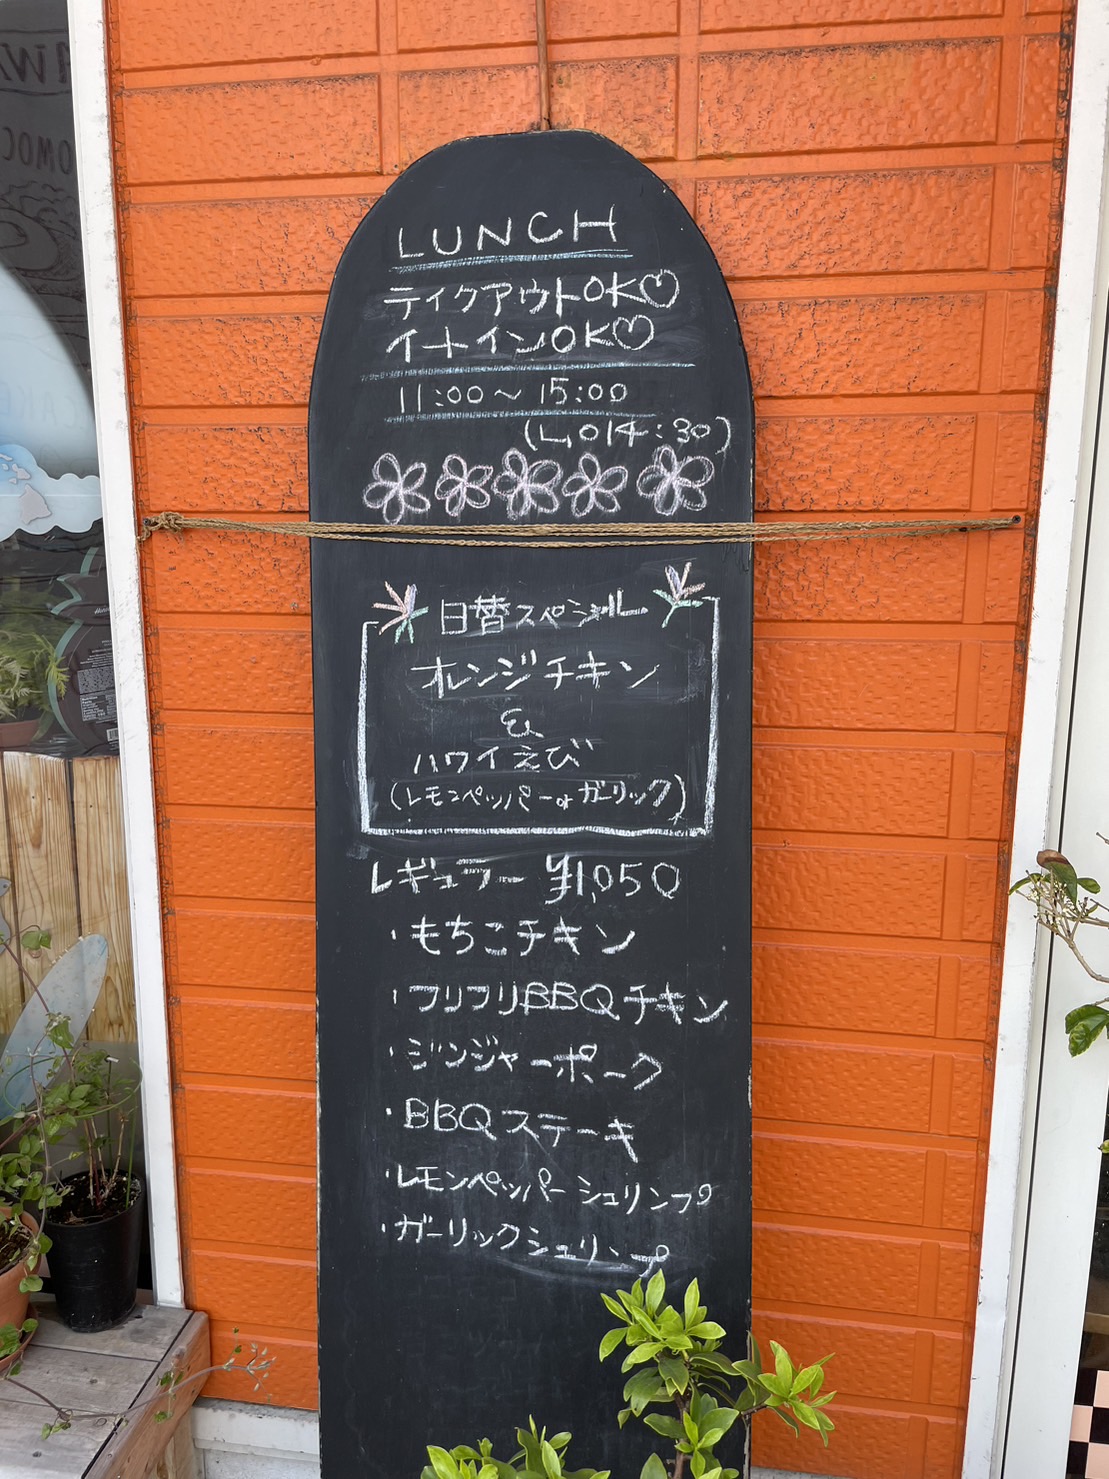 LUNCH
テイクアウトOK♡
イートインOK♡
11:00～15:00
(L,O14:30)
日替スペシャル
オレンジチキン
&
ハワイえび
(レモンペッパーorガーリック)
レギュラー ¥1,050
・もちこチキン
・フリフリBBQチキン
・ジンジャーポーク
・BBQステーキ
・レモンペッパーシュリンプ
・ガーリックシュリンプ